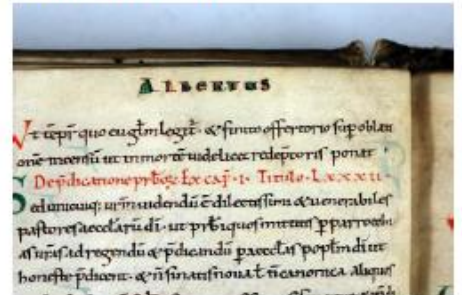 ALBERTUS
Ut tēpr̄ quo eugl̄m legit̄. & finito offertorio sup̄ oblati
onē incensū ut in mortē uidelicet redēptoris ponat̄
De p̄dicatione pr̄bo. Ex cap̄. I. Titulo. LXXXII.
Sed unicuiq; urm̄ uidendū ē dilectissimi & uenerabiles
pastores aecclarū dī. ut pr̄biquos mittitis p̄ parrochi
as urās ad regendū & p̄dicandū p aeccl̄as popl̄m dī ut
honeste p̄dicent. & n̄ sinatis noua t̄ n̄ canonica aliquos